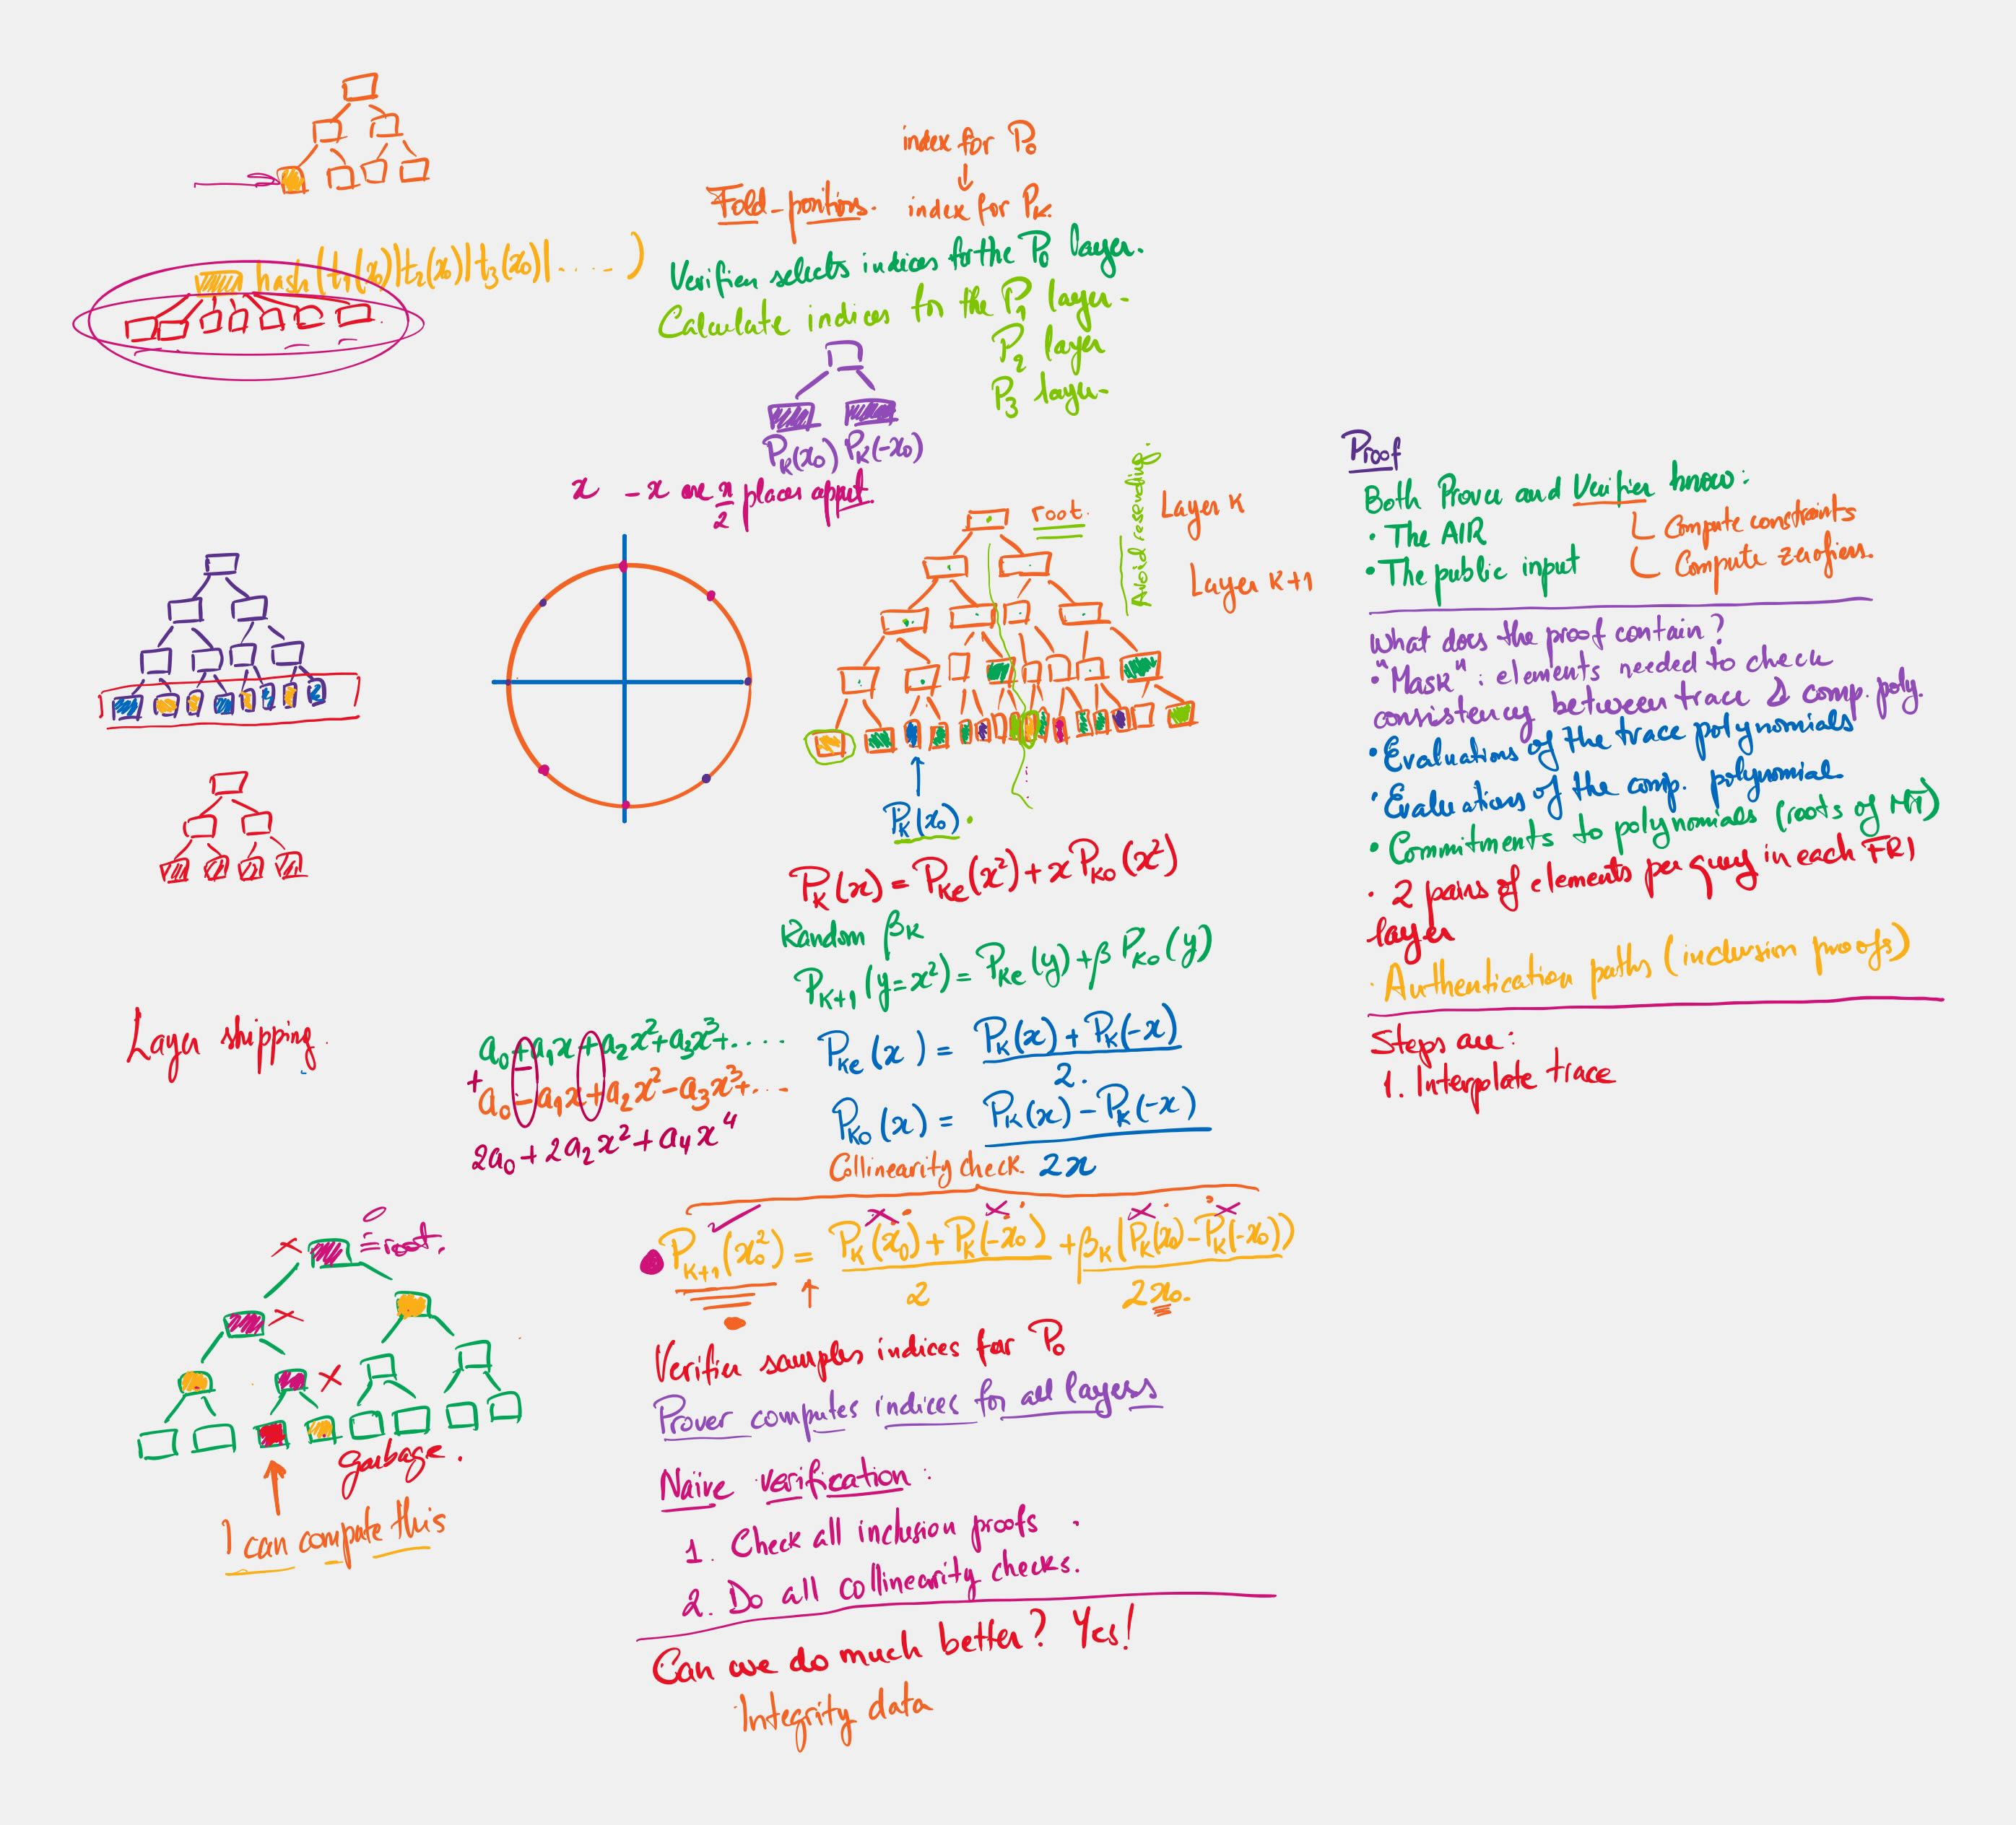 index for P₀
↓
Fold-positions. index for Pₖ.
hash(t₁(x₀)|t₂(x₀)|t₃(x₀)|.....)
Verifier selects indices for the P₀ layer.
Calculate indices for the P₁ layer.
P₂ layer
P₃ layer.
Pₖ(x₀) Pₖ(-x₀)
x -x are n/2 places apart.
root.
Avoid resending.
Layer K
Layer K+1
Pₖ(x₀).
Pₖ(x) = Pₖₑ(x²) + x Pₖₒ(x²)
Random βₖ
Pₖ₊₁(y=x²) = Pₖₑ(y) + β Pₖₒ(y)
Pₖₑ(x) = (Pₖ(x) + Pₖ(-x)) / 2.
Pₖₒ(x) = (Pₖ(x) - Pₖ(-x)) / 2x
Layer shipping.
a₀+a₁x+a₂x²+a₃x³+....
+
a₀-a₁x+a₂x²-a₃x³+...
2a₀+2a₂x²+a₄x⁴
Collinearity check.
Pₖ₊₁(x₀²) = (Pₖ(x₀) + Pₖ(-x₀)) / 2 + βₖ(Pₖ(x₀) - Pₖ(-x₀)) / 2x₀.
=root.
garbage.
I can compute this
Verifier samples indices for P₀
Prover computes indices for all layers
Naive verification:
1. Check all inclusion proofs.
2. Do all collinearity checks.
Can we do much better? Yes!
Integrity data
Proof
Both Prover and Verifier know:
• The AIR
• The public input
Compute constraints
Compute zerofiers.
What does the proof contain?
• "Mask": elements needed to check
consistency between trace & comp. poly.
• Evaluations of the trace polynomials
• Evaluations of the comp. polynomial
• Commitments to polynomials (roots of MT)
• 2 pairs of elements per query in each FRI
layer
• Authentication paths (inclusion proofs)
Steps are:
1. Interpolate trace